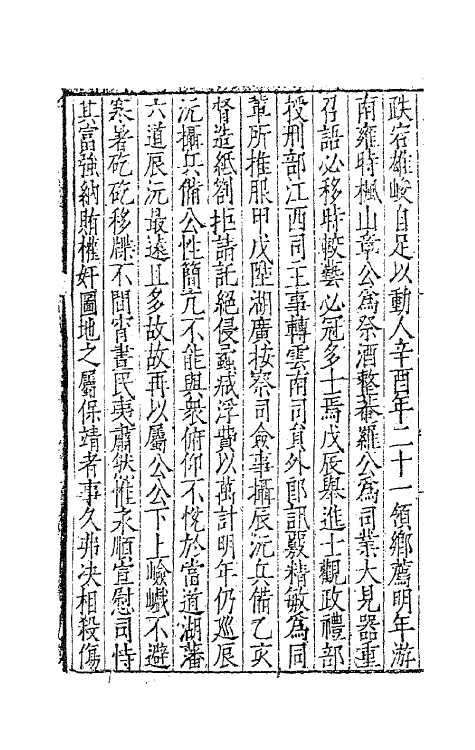 跌宕雄峻自足以動人辛酉年二十一領鄉薦明年游
南雍時楓山章公為祭酒整菴羅公為司業大見器重
召語必移時較藝必冠多士焉戊辰舉進士觀政禮部
授刑部江西司主事轉雲南司員外郎訊覈精敏為同
輩所推服甲戌陞湖廣按察司僉事攝辰沅兵備乙亥
督造紙劄拒請託絕侵蠧減浮費以萬計明年仍巡辰
沅攝兵備公性簡亢不能與衆俯仰不悅於當道湖藩
六道辰沅最遠且多故故再以屬公公下上嶮巇不避
寒暑矻矻移牒不間宵晝民夷肅然惟永順宣慰司恃
其富強納賄權奸圖地之屬保靖者事久弗决相殺傷